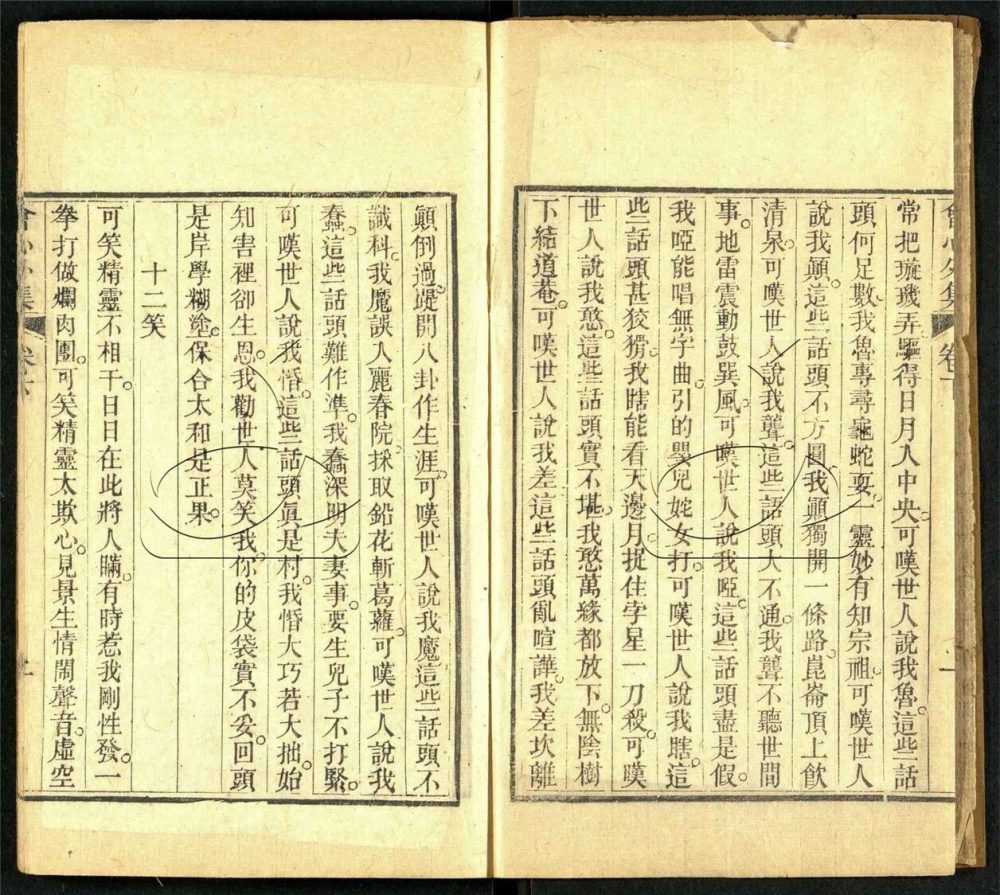 常把璇璣弄驅得日月入中央。可嘆世人說我魯。這些話
頭何足數。我魯專尋龜蛇耍。一靈妙有知宗祖。可嘆世人
說我顛。這些話頭不方圓。我顛獨開一條路。崑崙頂上飮
清泉。可嘆世人說我聾。這些話頭大不通。我聾不聽世間
事。地雷震動鼓巽風。可嘆世人說我啞。這些話頭盡是假。
我啞能唱無字曲。引的嬰兒姹女打。可嘆世人說我瞎。這
些話頭甚狡猾。我瞎能看天邊月。捉住字星一刀殺。可嘆
世人說我憨。這些話頭實不堪。我憨萬緣都放下。無陰樹
下結道菴。可嘆世人說我差。這些話頭亂喧譁。我差坎離
顚倒過。踶開八卦作生涯。可嘆世人說我魔。這些話頭不
識科。我魔誤入麗春院。採取鉛花斬葛蘿。可嘆世人說我
蠢。這些話頭難作準。我蠢深明夫妻事。要生兒子不打緊。
可嘆世人說我惛。這些話頭眞是村。我惛大巧若大拙。始
知害裡卻生恩。我勸世人莫笑我。你的皮袋實不妥。回頭
是岸學糊塗。保合太和是正果。
十二笑
可笑精靈不相干。日日在此將人瞞。有時惹我剛性發。一
拳打做爛肉團。可笑精靈太欺心。見景生情鬧聲音。虛空